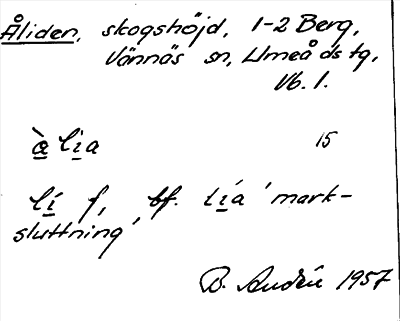 Åliden, skogshöjd, 1-2 Berg,
Vännäs sn, Umeå ds tg,
Vb. l.
à̱ li̱a 15
lí̱ f, bf. lí̱a ' mark-
sluttning'
B. 1957